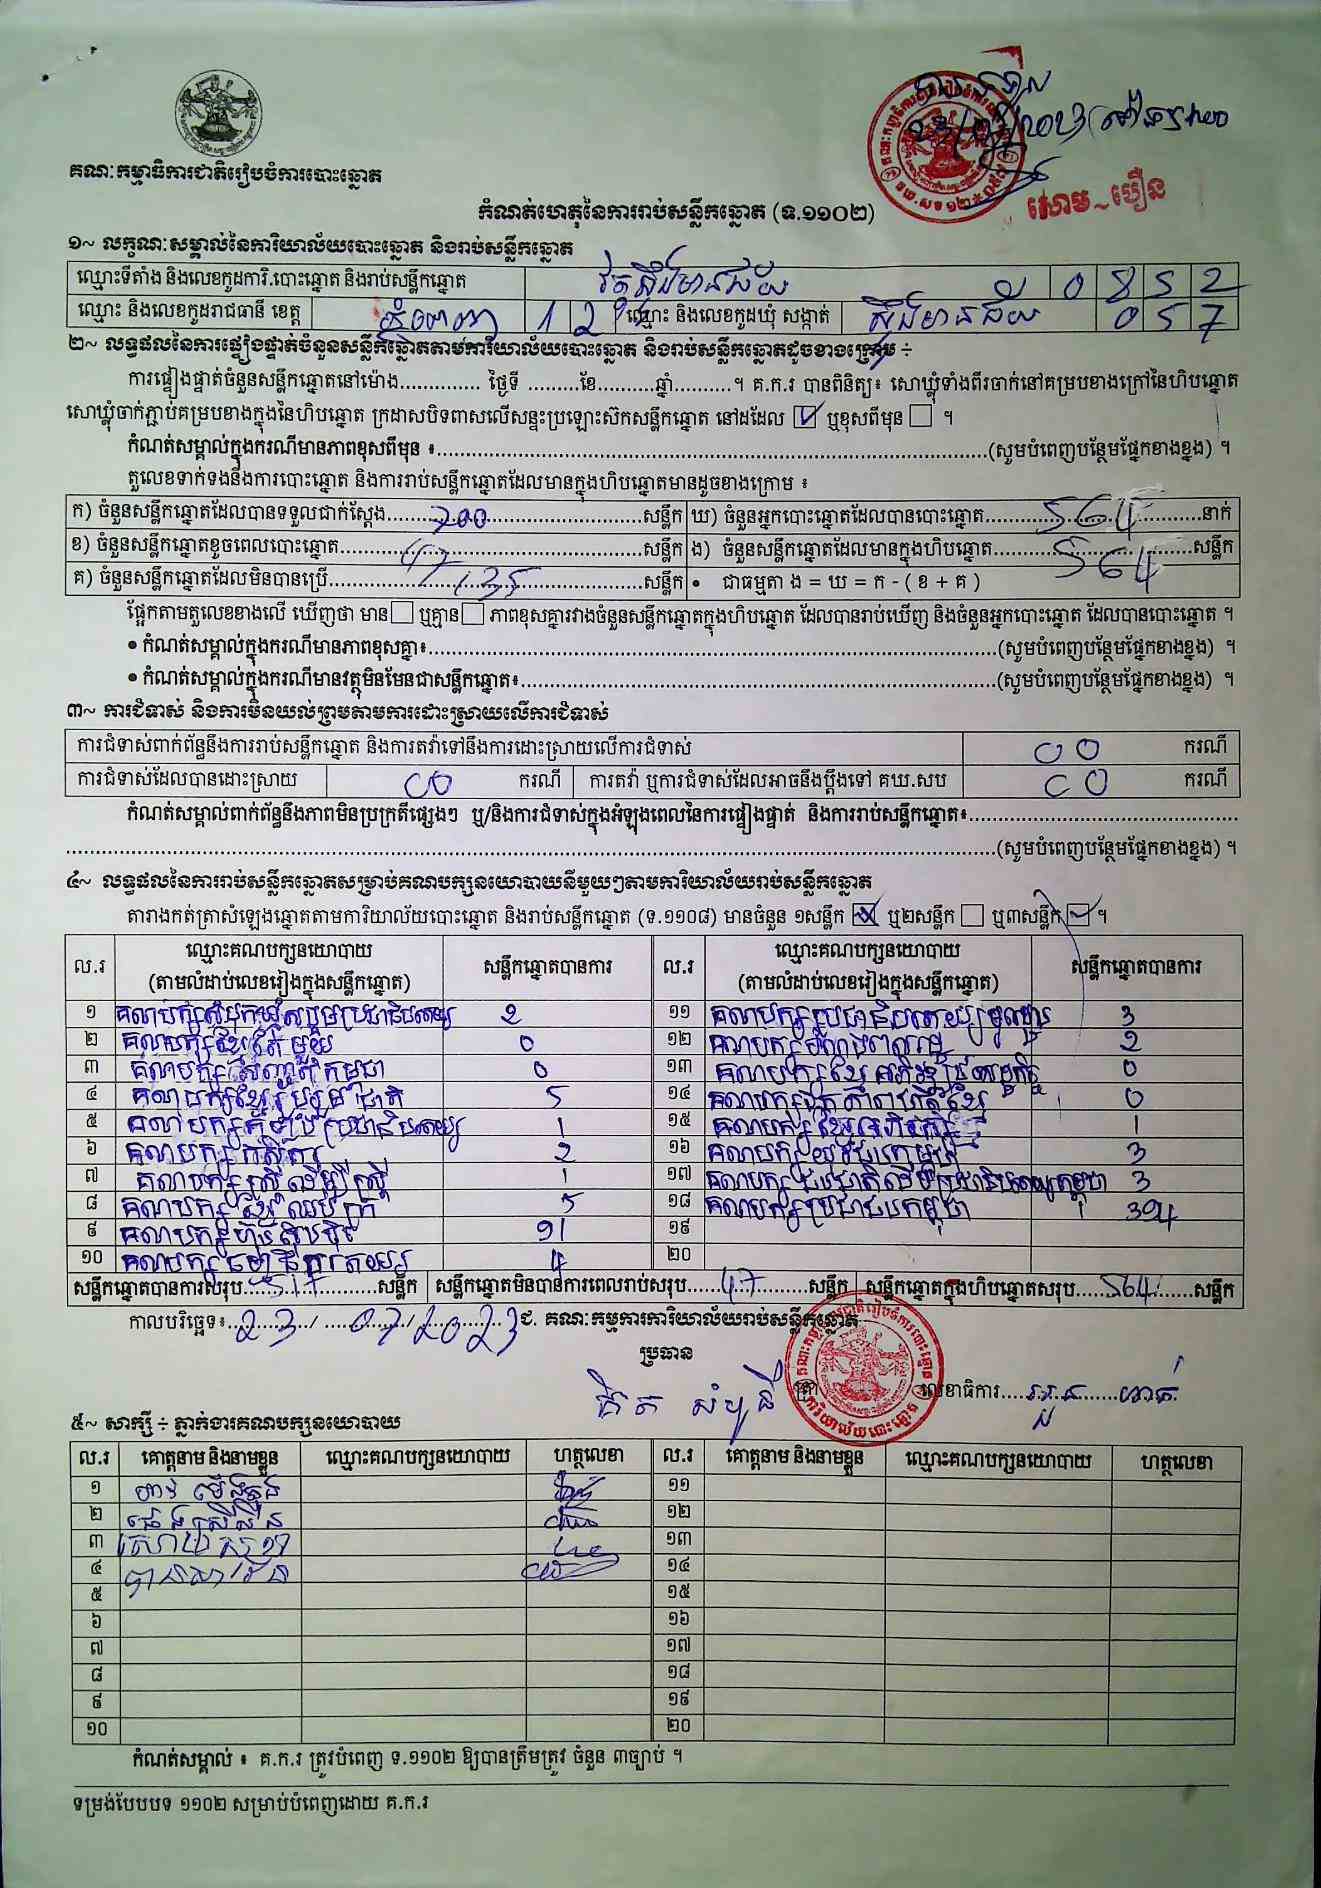 គណៈកម្មាធិការជាតិរៀបចំការបោះឆ្នោត
សោម ~ បឿន
កំណត់ហេតុនៃការរាប់សន្លឹកឆ្នោត (ទ.១១០២)
១~ លក្ខណៈសម្គាល់នៃការិយាល័យបោះឆ្នោត និងរាប់សន្លឹកឆ្នោត
ឈ្មោះទីតាំង និងលេខកូដការិ.បោះឆ្នោត និងរាប់សន្លឹកឆ្នោត វត្តស្ទឹងមានជ័យ 0 8 5 2
ឈ្មោះ និងលេខកូដរាជធានី ខេត្ត ភ្នំពេញ 1 2 ឈ្មោះ និងលេខកូដឃុំ សង្កាត់ ស្ទឹងមានជ័យ 0 5 7
២~ លទ្ធផលនៃការផ្ទៀងផ្ទាត់ចំនួនសន្លឹកឆ្នោតតាមការិយាល័យបោះឆ្នោត និងរាប់សន្លឹកឆ្នោតដូចខាងក្រោម ÷
ការផ្ទៀងផ្ទាត់ចំនួនសន្លឹកឆ្នោតនៅម៉ោង.............. ថ្ងៃទី .........ខែ..........ឆ្នាំ..........។ គ.ក.រ បានពិនិត្យ៖ សោឃ្លុំទាំងពីរចាក់នៅគម្របខាងក្រៅនៃហិបឆ្នោត
សោឃ្លុំចាក់ភ្ជាប់គម្របខាងក្នុងនៃហិបឆ្នោត ក្រដាសបិទពាសលើសន្ទះប្រឡោះស៊កសន្លឹកឆ្នោត នៅដដែល ☑ ឬខុសពីមុន ☐ ។
កំណត់សម្គាល់ក្នុងករណីមានភាពខុសពីមុន ៖..........(សូមបំពេញបន្ថែមផ្នែកខាងខ្នង) ។
តួលេខទាក់ទងនឹងការបោះឆ្នោត និងការរាប់សន្លឹកឆ្នោតដែលមានក្នុងហិបឆ្នោតមានដូចខាងក្រោម ៖
ក) ចំនួនសន្លឹកឆ្នោតដែលបានទទួលជាក់ស្តែង.....700.....សន្លឹក ឃ) ចំនួនអ្នកបោះឆ្នោតដែលបានបោះឆ្នោត.....564.....នាក់
ខ) ចំនួនសន្លឹកឆ្នោតខូចពេលបោះឆ្នោត..........សន្លឹក ង) ចំនួនសន្លឹកឆ្នោតដែលមានក្នុងហិបឆ្នោត.....564.....សន្លឹក
គ) ចំនួនសន្លឹកឆ្នោតដែលមិនបានប្រើ.....135.....សន្លឹក • ជាធម្មតា ង = ឃ = ក - ( ខ + គ )
ផ្អែកតាមតួលេខខាងលើ ឃើញថា មាន ☐ ឬគ្មាន ☐ ភាពខុសគ្នារវាងចំនួនសន្លឹកឆ្នោតក្នុងហិបឆ្នោត ដែលបានរាប់ឃើញ និងចំនួនអ្នកបោះឆ្នោត ដែលបានបោះឆ្នោត ។
• កំណត់សម្គាល់ក្នុងករណីមានភាពខុសគ្នា៖..........(សូមបំពេញបន្ថែមផ្នែកខាងខ្នង) ។
• កំណត់សម្គាល់ក្នុងករណីមានវត្ថុមិនមែនជាសន្លឹកឆ្នោត៖..........(សូមបំពេញបន្ថែមផ្នែកខាងខ្នង) ។
៣~ ការជំទាស់ និងការមិនយល់ព្រមតាមការដោះស្រាយលើការជំទាស់
ការជំទាស់ពាក់ព័ន្ធនឹងការរាប់សន្លឹកឆ្នោត និងការតវ៉ាទៅនឹងការដោះស្រាយលើការជំទាស់ 00 ករណី
ការជំទាស់ដែលបានដោះស្រាយ 00 ករណី ការតវ៉ា ឬការជំទាស់ដែលអាចនឹងប្តឹងទៅ គឃ.សប 00 ករណី
កំណត់សម្គាល់ពាក់ព័ន្ធនឹងភាពមិនប្រក្រតីផ្សេងៗ ឬ/និងការជំទាស់ក្នុងអំឡុងពេលនៃការផ្ទៀងផ្ទាត់ និងការរាប់សន្លឹកឆ្នោត៖..........
..........(សូមបំពេញបន្ថែមផ្នែកខាងខ្នង) ។
៤~ លទ្ធផលនៃការរាប់សន្លឹកឆ្នោតសម្រាប់គណបក្សនយោបាយនីមួយៗតាមការិយាល័យរាប់សន្លឹកឆ្នោត
តារាងកត់ត្រាសំឡេងឆ្នោតតាមការិយាល័យបោះឆ្នោត និងរាប់សន្លឹកឆ្នោត (ទ.១១០៨) មានចំនួន ១សន្លឹក ☒ ឬ២សន្លឹក ☐ ឬ៣សន្លឹក ☑ ។
ល.រ ឈ្មោះគណបក្សនយោបាយ (តាមលំដាប់លេខរៀងក្នុងសន្លឹកឆ្នោត) សន្លឹកឆ្នោតបានការ ល.រ ឈ្មោះគណបក្សនយោបាយ (តាមលំដាប់លេខរៀងក្នុងសន្លឹកឆ្នោត) សន្លឹកឆ្នោតបានការ
១ គណបក្សសំបុកឃ្មុំសង្គមប្រជាធិបតេយ្យ 2 ១១ គណបក្សប្រជាធិបតេយ្យមូលដ្ឋាន 3
២ គណបក្សខ្មែរតែមួយ 0 ១២ គណបក្សពលរដ្ឋ 2
៣ គណបក្សសញ្ជាតិកម្ពុជា 0 ១៣ គណបក្សខ្មែរអភិវឌ្ឍន៍សេដ្ឋកិច្ច 0
៤ គណបក្សខ្មែររួបរួមជាតិ 5 ១៤ គណបក្សឯកភាពជាតិខ្មែរ 0
៥ គណបក្សកម្លាំងប្រជាធិបតេយ្យ 1 ១៥ គណបក្សខ្មែរអភិរក្ស 1
៦ គណបក្សកសិករ 2 ១៦ គណបក្សយុវជនកម្ពុជា 3
៧ គណបក្សស្ត្រីដើម្បីស្ត្រី 1 ១៧ គណបក្សជនជាតិដើមប្រជាធិបតេយ្យកម្ពុជា 3
៨ គណបក្សខ្មែរឈប់ក្រ 5 ១៨ គណបក្សប្រជាជនកម្ពុជា 394
៩ គណបក្សហ្វ៊ុនស៊ិនប៉ិច 91 ១៩
១០ គណបក្សធម្មាធិបតេយ្យ 4 ២០
សន្លឹកឆ្នោតបានការសរុប.....517.....សន្លឹក សន្លឹកឆ្នោតមិនបានការពេលរាប់សរុប.....47.....សន្លឹក សន្លឹកឆ្នោតក្នុងហិបឆ្នោតសរុប.....564.....សន្លឹក
កាលបរិច្ឆេទ៖ 23 / 07 / 2023 ជ. គណៈកម្មការការិយាល័យរាប់សន្លឹកឆ្នោត
ប្រធាន
លេខាធិការ
៥~ សាក្សី ÷ ភ្នាក់ងារគណបក្សនយោបាយ
ល.រ គោត្តនាម និងនាមខ្លួន ឈ្មោះគណបក្សនយោបាយ ហត្ថលេខា ល.រ គោត្តនាម និងនាមខ្លួន ឈ្មោះគណបក្សនយោបាយ ហត្ថលេខា
១ ១១
២ ១២
៣ ១៣
៤ ១៤
៥ ១៥
៦ ១៦
៧ ១៧
៨ ១៨
៩ ១៩
១០ ២០
កំណត់សម្គាល់ ៖ គ.ក.រ ត្រូវបំពេញ ទ.១១០២ ឱ្យបានត្រឹមត្រូវ ចំនួន ៣ច្បាប់ ។
ទម្រង់បែបបទ ១១០២ សម្រាប់បំពេញដោយ គ.ក.រ